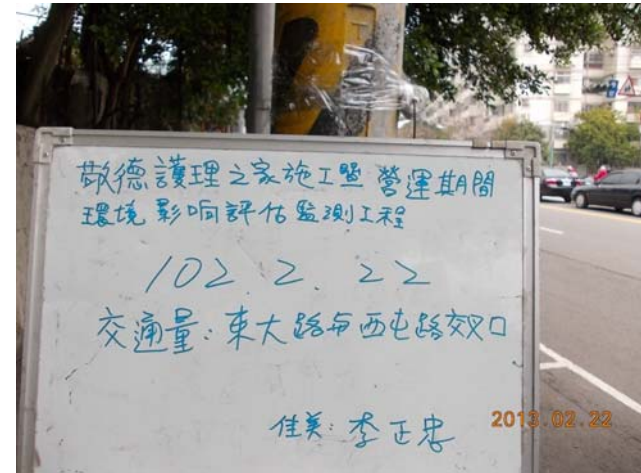 敬德護理之家施工暨 營運期間
環境影响評估監測工程
102 2 22
交通量:東大路与西屯路交叉口
佳美:李正忠
2013.02.22